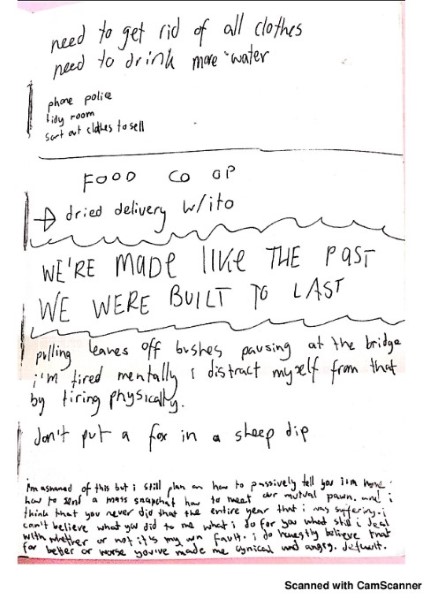 need to get rid of all clothes
need to drink more water
phone police
tidy room
sort out clothes to sell
FOOD CO OP
→ dried delivery w/ito
WE'RE MADE LIKE THE PAST
WE WERE BUILT TO LAST
pulling leaves off bushes pausing at the bridge
i'm tired mentally i distract myself from that
by tiring physically.
don't put a fox in a sheep dip
i'm ashamed of this but i still plan on how to passively tell you i'm home.
how to send a mass snapchat how to meet our mutual pawn. and i
think that you never did that the entire year that i was suffering. i
can't believe what you did to me what i do for you what still i deal
with whether or not it's my own fault. i do honestly believe that
for better or worse you've made me cynical and angry.
Scanned with CamScanner